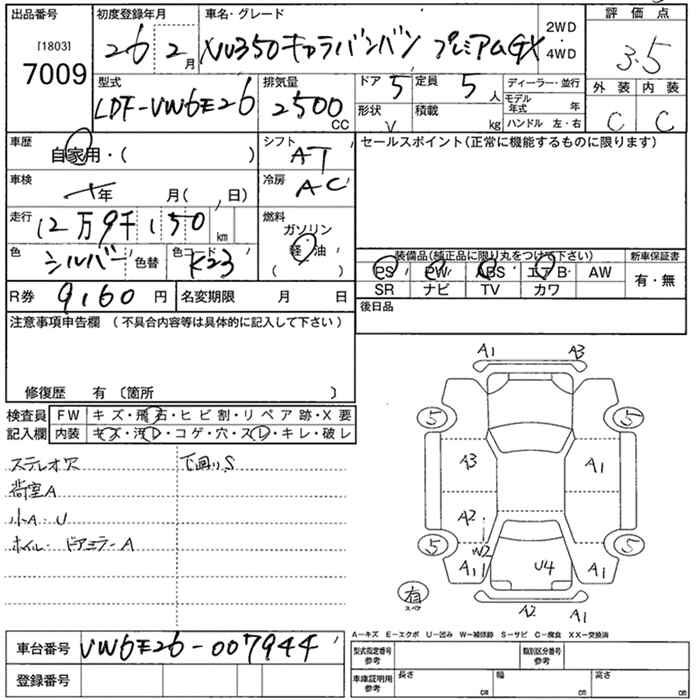 出品番号 初度登録年月 車名・グレード 2WD・4WD 評価点
[1803]
7009 26 2月 NV350キャラバンバン プレミアムGX 3.5
型式 排気量 ドア 5 定員 5人 ディーラー・並行 外装 内装
LDF-VW6E26 2500CC 形状 V 積載 kg モデル年式 年 C C
ハンドル 左・右
車歴 シフト セールスポイント(正常に機能するものに限ります)
自家用・( ) AT
車検 冷房
年 月( 、日) AC
走行 燃料
12万9千150km ガソリン
軽・油
( )
色 シルバー 色替 色コード K23
装備品(純正品に限り丸をつけて下さい) 新車保証書
PS PW ABS エアB AW 有・無
SR ナビ TV カワ
R券 9,160円 名変期限 月 日 後日品
注意事項申告欄 (不具合内容等は具体的に記入して下さい)
修復歴 有 〔箇所 〕
検査員 FW キズ・飛石・ヒビ割・リペア跡・X要
記入欄 内装 キズ・汚レ・コゲ・穴・スレ・キレ・破レ
ステレオ穴 下回りS
荷室A
小A・U
ホイル・ドアミラーA
A1 A3
5 5
A3 A1
A2
5 W2 5
A1 U4 A1
有
スペア
A2 A1
A-キズ E-エクボ U-凹み W-補修跡 S-サビ C-腐食 XX-交換済
車台番号 VW6E26-007944 型式指定番号 参考 類別区分番号 参考
登録番号 車庫証明用 参考 長さ cm 幅 cm 高さ cm